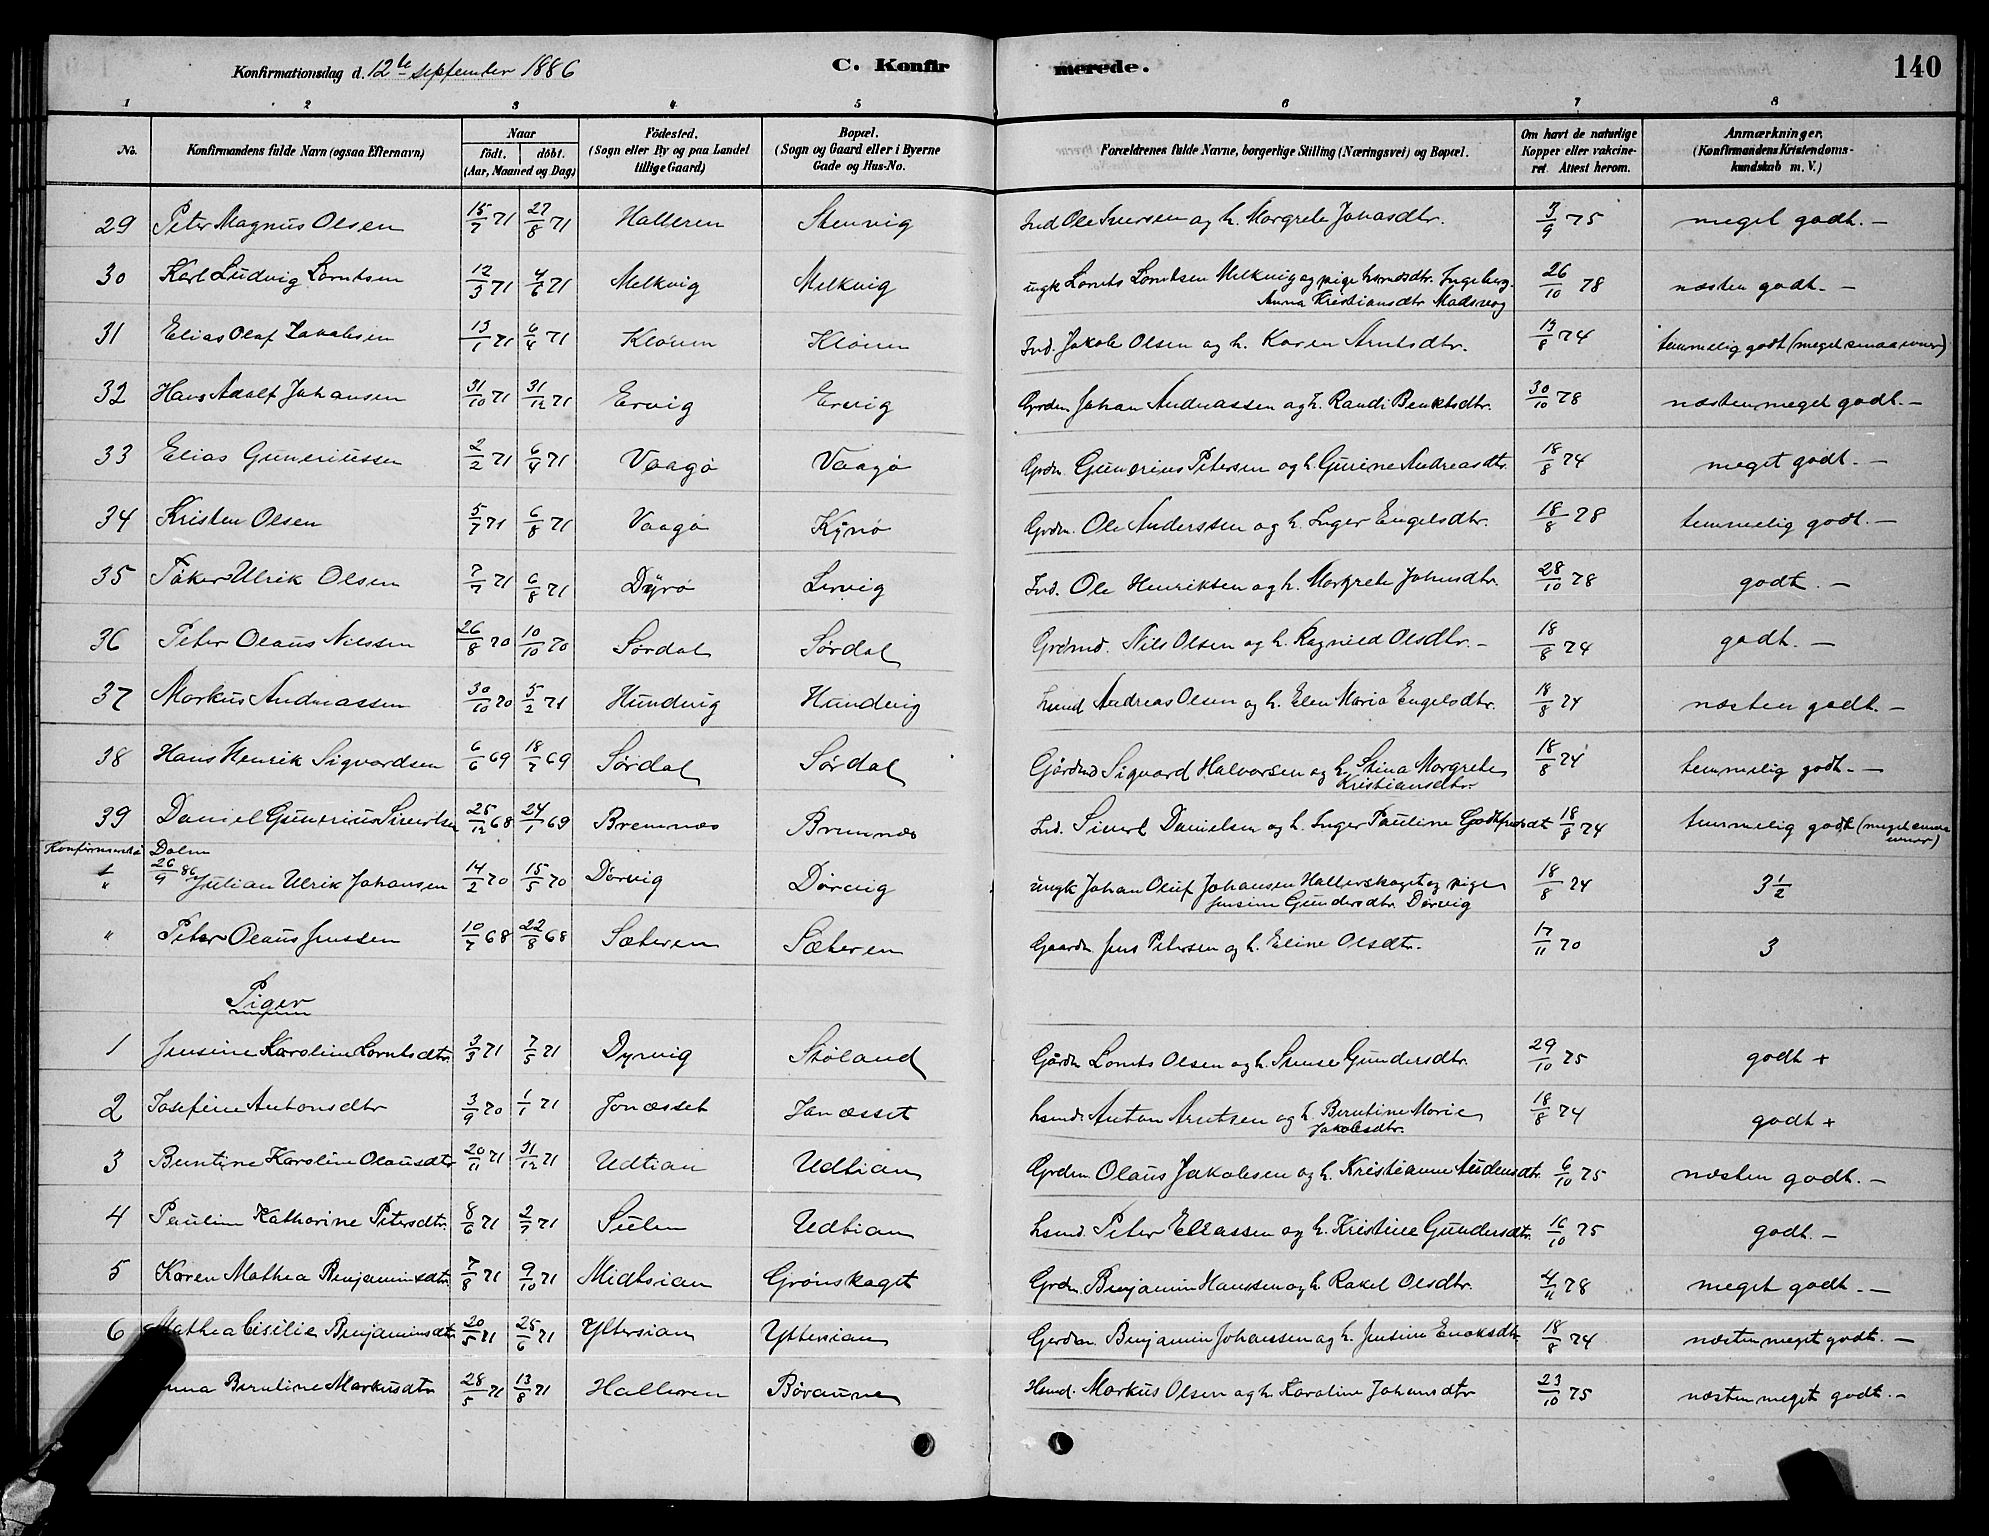 Konfirmationsdag d. 12te september 1886 C. Konfir merede. 140
1 2 3 4 5 6 7 8
No. Konfirmandens fulde Navn (ogsaa Efternavn) Naar födt. döbt. (Aar, Maaned og Dag) Födested. (Sogn eller By og paa Landet tillige Gaard) Bopæl. (Sogn og Gaard eller i Byerne Gade og Hus-No. Forældrenes fulde Navne, borgerlige Stilling (Næringsvei) og Bopæl. Om havt de naturlige Kopper eller vakcineret. Attest herom. Anmærkninger. (Konfirmandens Kristendomskundskab m. V.)
29 Peter Magnus Olsen 15/7 71 27/8 71 Halleren Stenvig Ind Ole Iversen og h. Margrete Johasdtr. 3/9 75 meget godt. —
30 Karl Ludvig Lorntsen 12/3 71 4/6 71 Melkvig Melkvig ungk Lornts Lorntsen Melkvig og pige Ingeborg
Anna Kristiansdtr Madsvog 26/10 78 næsten godt. —
31 Elias Olaf Jakobsen 13/1 71 6/4 71 Kloven Ind. Jakob Olsen og h. Karen Arntsdtr. 13/8 74 temmelig godt (meget smaa evner)
32 Hans Adolf Johansen 31/10 71 31/12 71 Ervig Ervig Grdm Johan Andreassen og h. Randi Benktsdtr. 30/10 78 næsten meget godt. —
33 Elias Guneriussen 2/2 71 6/4 71 Vaagø Vaagø Grdm Gunerius Petersen og h. Gurine Andreasdtr. 18/8 74 meget godt. —
34 Kristen Olsen 5/7 71 6/8 71 Vaagø Kynø Grdm. Ole Anderssen og h. Inger Engelsdtr. 18/8 78 temmelig godt. —
35 Ulrik Olsen 7/7 71 6/8 71 Dyrø Lervig Ind. Ole Henriksen og h. Margrete Johnsdtr. 28/10 78 godt. —
36 Peter Olaus Nilssen 26/8 70 10/10 70 Sørdal Sørdal Grdmd. Nils Olsen og h. Ragnild Olsdtr. — 18/8 74 godt. —
37 Markus Andreassen 30/10 70 5/2 71 Hundvig Hundvig Lsmd Andreas Olsen og h. Elen Maria Engelsdtr. 18/8 74 næsten godt. —
38 Hans Henrik Sigvardsen 6/6 69 18/7 69 Sørdal Sørdal Gårdmd Sigvard Halvorsen og h. Stina Margrete
Kristiansdtr. 18/8 74 temmelig godt. —
39 Daniel Gunerius Sivertsen 25/12 68 24/1 69 Bremnes Bremnes Ind. Sivert Danielsen og h. Inger Pauline Godtfredsdt 18/8 74 temmelig godt (meget smaa evner)
Dolm
26/9 86 Julian Ulrik Johansen 14/2 70 15/5 70 Dørvig Dørvig ungk Johan Oluf Johansen Hallerskaget og pige
Jensine Gundersdtr. Dørvig 18/8 74 3 1/2
" Peter Olaus Jenssen 10/7 68 22/8 68 Sæteren Sæteren Gaardm Jens Petersen og h. Eline Olsdtr. 17/11 70 3
Piger
1 Jensine Karoline Lorntsdtr. 3/3 71 7/5 71 Dyrvig Støland Gårdm Lornts Olsen og h. Gundersdtr. 29/10 75 godt +
2 Josefine Antonsdtr 3/9 70 1/1 71 Jonæsset Jonæsset Lsmd. Anton Arntsen og h. Berntine Marie
Jakobsdtr. 18/8 74 godt +
3 Berntine Karoline Olausdtr 20/11 71 31/12 71 Udtian Udtian Grdm. Olaus Jakobsen og h. Kristianne Andersdtr. 6/10 75 næsten godt. —
4 Pauline Katharine Petersdtr. 8/6 71 2/7 71 Sulen Udtian Lsmd. Peter Eliassen og h. Kristine Gundersdtr. 16/10 75 godt. —
5 Karen Mathea Benjaminsdtr. 7/8 71 9/10 71 Midtsian Grønskaget Grdm. Benjamin Hanssen og h. Rakel Olsdtr. 4/11 78 meget godt. —
6 Mathea Cisilie Benjaminsdtr 20/5 71 25/6 71 Yttersian Yttersian Gerdm. Benjamin Johanssen og h. Jensine Enoksdtr. 18/8 74 næsten meget godt. —
Anna Berntine Markusdtr 28/5 71 13/8 71 Halleren Børaunne Hsmd. Markus Olsen og h. Karoline Johansdtr 23/10 75 næsten meget godt. —